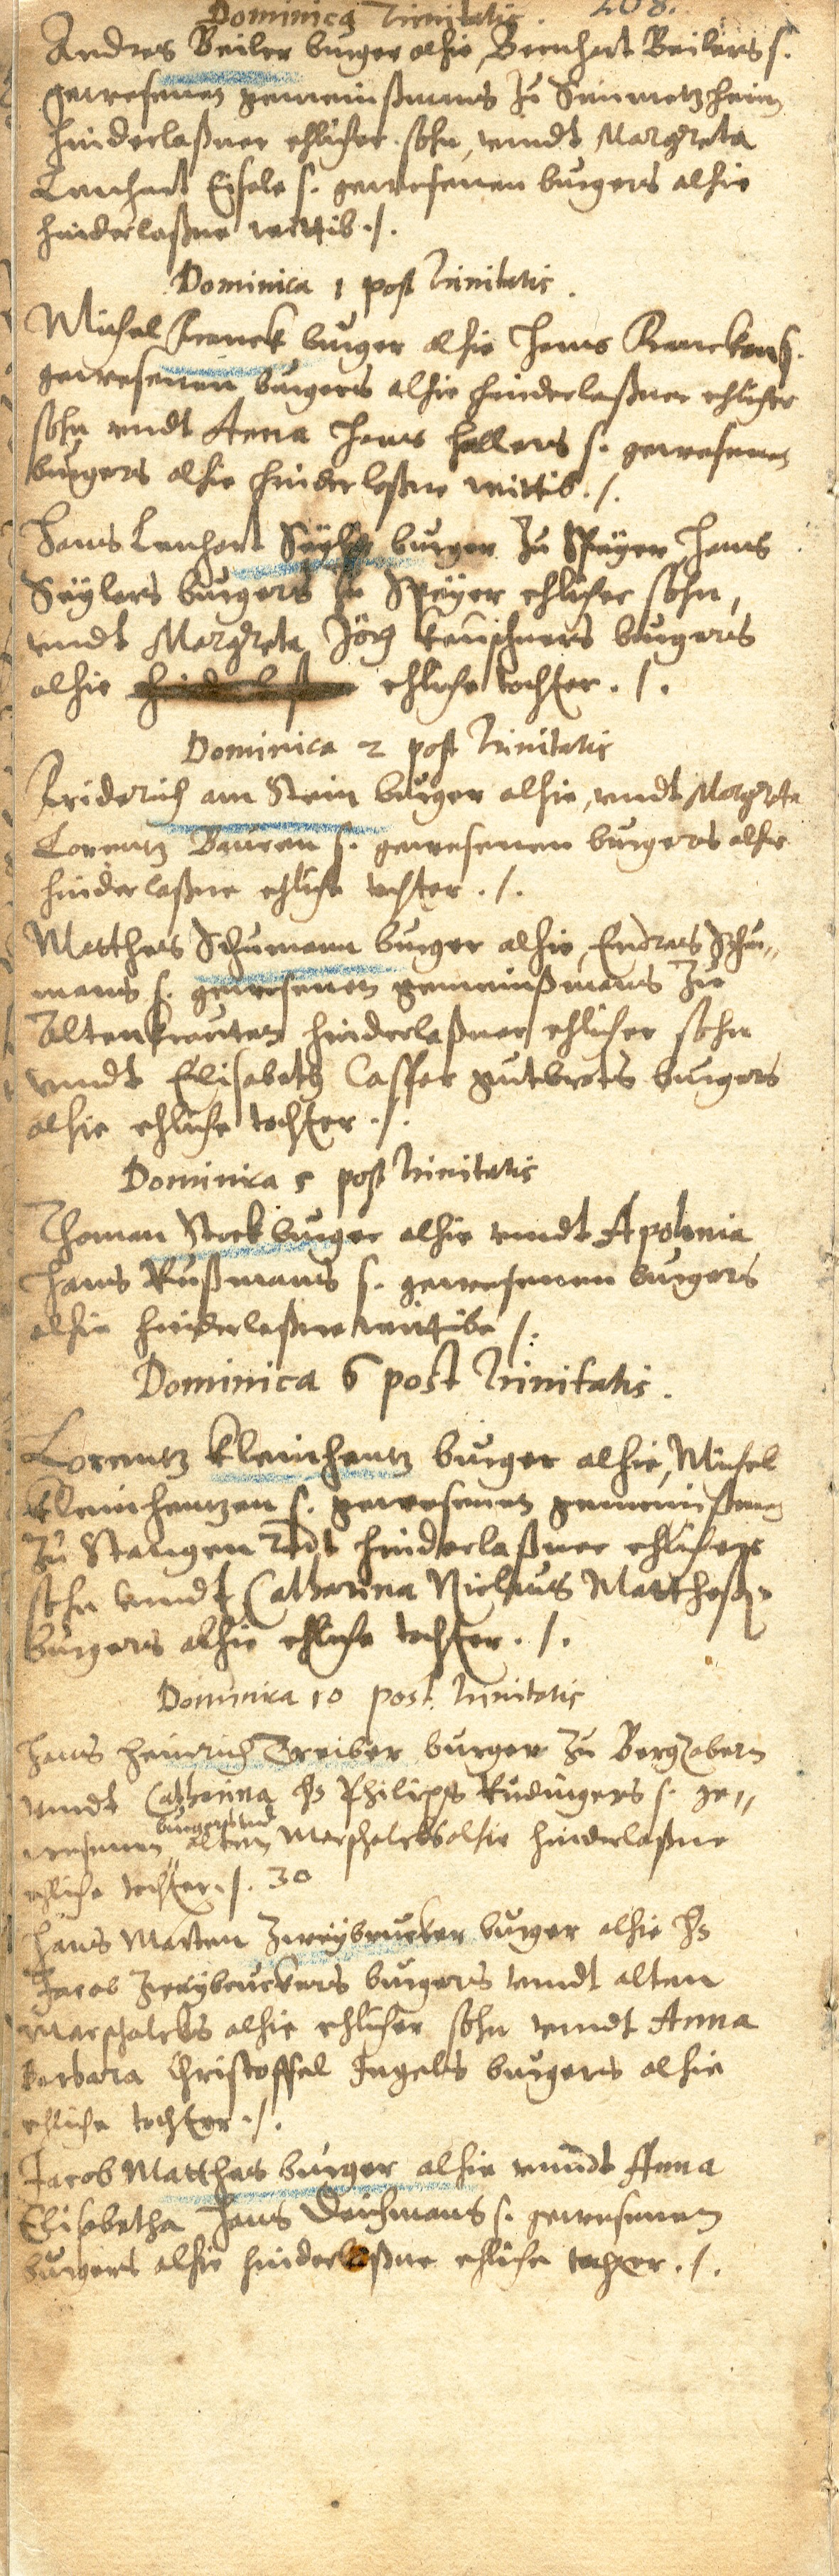 Dominica Trinitatis. 208.
Andres Beiler burger alhie, Bernhart Beilers s.
gewesenen gemeinßmans zu
hinderlaßner ehlicher sohn, vnndt Margreta
Lenhart Eisele s. gewesenen burgers alhie
hinderlaßne wittib ./.
Dominica 1 post Trinitatis.
Michel Franck burger alhie Hans Francken s.
gewesenen burgers alhie hinderlaßner ehlicher
sohn vndt Anna Hans Hallers s. gewesenen
burgers alhie hinderlaßne wittib ./.
Hans Lenhart Seyler burger zu Speyer, Hans
Seylers burgers zu Speyer ehlicher sohn,
vndt Margreta Jörg burgers
alhie ehliche tochter ./.
Dominica 2 post Trinitatis
Friderich am Stein burger alhie, vndt Margreta
Lorentz Bauren s. gewesenen burgers alhie
hinderlaßne ehliche tochter ./.
Matthes Schumann burger alhie, Endres Schu„
mans s. gewesenen gemeinßmans zu
hinderlaßner ehlicher sohn
vndt Elisabeth Casper gutbrots burgers
alhie ehliche tochter ./.
Dominica 5 post Trinitatis
Thoman Stock burger alhie vndt Apolonia
Hans Rußmans s. gewesenen burgers
alhie hinderlaßne wittibe ./.
Dominica 6 post Trinitatis.
Lorentz Kleinhantz burger alhie, Michel
Kleinhentzen s. gewesenen gemeinßmans
zu Stangenrodt hinderlaßner ehlicher
sohn vnndt Catharina Niclaus Mattheß
burgers alhie ehliche tochter ./.
Dominica 10 post Trinitatis
Hans Heinrich Treiber burger zu Bergzabern
vnndt Catharina Hs Philips Rüdingers s. ge„
wesenen burgers vnd alten Marschalcks alhie hinderlaßne
ehliche tochter ./. 30
Hans Marten Zweybrucker burger alhie Hs
Jacob Zweybruckers burgers vnndt alten
Marschalcks alhie ehlicher sohn vnndt Anna
barbara Christoffel Ingels burgers alhie
ehliche tochter ./.
Jacob Matthes burger alhie vnndt Anna
Elisabetha Hans Deichmans s. gewesenen
burgers alhie hinderlaßne ehliche tochter ./.